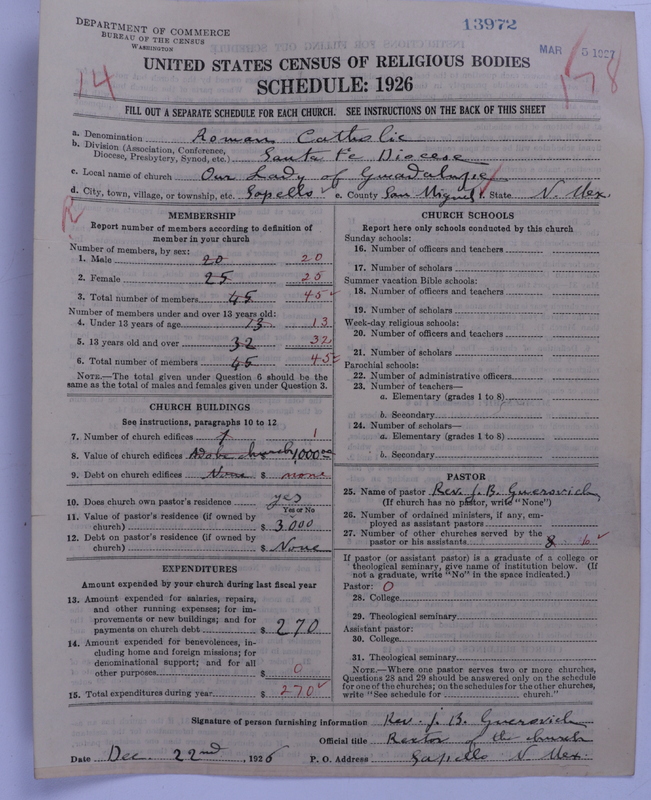 DEPARTMENT OF COMMERCE
BUREAU OF THE CENSUS
WASHINGTON
13972
MAR 5 1927
UNITED STATES CENSUS OF RELIGIOUS BODIES
SCHEDULE: 1926
14
FILL OUT A SEPARATE SCHEDULE FOR EACH CHURCH. SEE INSTRUCTIONS ON THE BACK OF THIS SHEET
a. Denomination Roman Catholic
b. Division (Association, Conference, Diocese, Presbytery, Synod, etc.) Santa Fe Diocese
c. Local name of church Our Lady of Guadalupe
d. City, town, village, or township, etc. Sapello e. County San Miguel f. State N. Mex.
R
MEMBERSHIP
Report number of members according to definition of
member in your church
Number of members, by sex:
1. Male 20 20
2. Female 25 25
3. Total number of members 45 45
Number of members under and over 13 years old:
4. Under 13 years of age 13 13
5. 13 years old and over 32 32
6. Total number of members 45 45
NOTE.—The total given under Question 6 should be the
same as the total of males and females given under Question 3.
CHURCH BUILDINGS
See instructions, paragraphs 10 to 12
7. Number of church edifices 1 1
8. Value of church edifices Adobe church 1,000
9. Debt on church edifices None $ none
10. Does church own pastor's residence yes
Yes or No
11. Value of pastor's residence (if owned by
church) $ 3.000
12. Debt on pastor's residence (if owned by
church) $ None
EXPENDITURES
Amount expended by your church during last fiscal year
13. Amount expended for salaries, repairs,
and other running expenses; for im-
provements or new buildings; and for
payments on church debt $ 270
14. Amount expended for benevolences, in-
cluding home and foreign missions; for
denominational support; and for all
other purposes $ 0
15. Total expenditures during year $ 270
CHURCH SCHOOLS
Report here only schools conducted by this church
Sunday schools:
16. Number of officers and teachers
17. Number of scholars
Summer vacation Bible schools:
18. Number of officers and teachers
19. Number of scholars
Week-day religious schools:
20. Number of officers and teachers
21. Number of scholars
Parochial schools:
22. Number of administrative officers
23. Number of teachers—
a. Elementary (grades 1 to 8)
b. Secondary
24. Number of scholars—
a. Elementary (grades 1 to 8)
b. Secondary
PASTOR
25. Name of pastor Rev. J. B. Guerovich
(If church has no pastor, write "None")
26. Number of ordained ministers, if any, em-
ployed as assistant pastors
27. Number of other churches served by the
pastor or his assistants 6
If pastor (or assistant pastor) is a graduate of a college or
theological seminary, give name of institution below. (If
not a graduate, write "No" in the space indicated.)
Pastor: 0
28. College
29. Theological seminary
Assistant pastor:
30. College
31. Theological seminary
NOTE.—Where one pastor serves two or more churches,
Questions 28 and 29 should be answered only on the schedule
for one of the churches; on the schedules for the other churches,
write "See schedule for church."
Signature of person furnishing information Rev. J. B. Guerovich
Official title Rector of the church
Date Dec. 22nd, 1926 P. O. Address Sapello N. Mex.